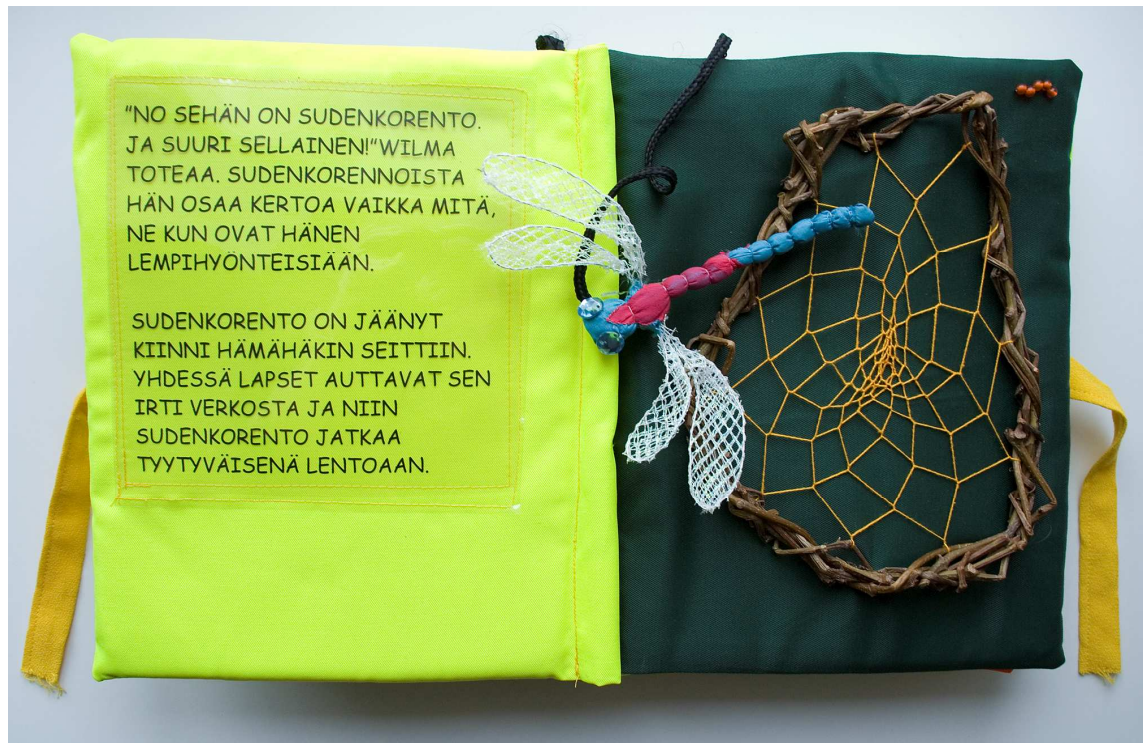 "NO SEHÄN ON SUDENKORENTO.
JA SUURI SELLAINEN!"WILMA
TOTEAA. SUDENKORENNOISTA
HÄN OSAA KERTOA VAIKKA MITÄ,
NE KUN OVAT HÄNEN
LEMPIHYÖNTEISIÄÄN.
SUDENKORENTO ON JÄÄNYT
KIINNI HÄMÄHÄKIN SEITTIIN.
YHDESSÄ LAPSET AUTTAVAT SEN
IRTI VERKOSTA JA NIIN
SUDENKORENTO JATKAA
TYYTYVÄISENÄ LENTOAAN.